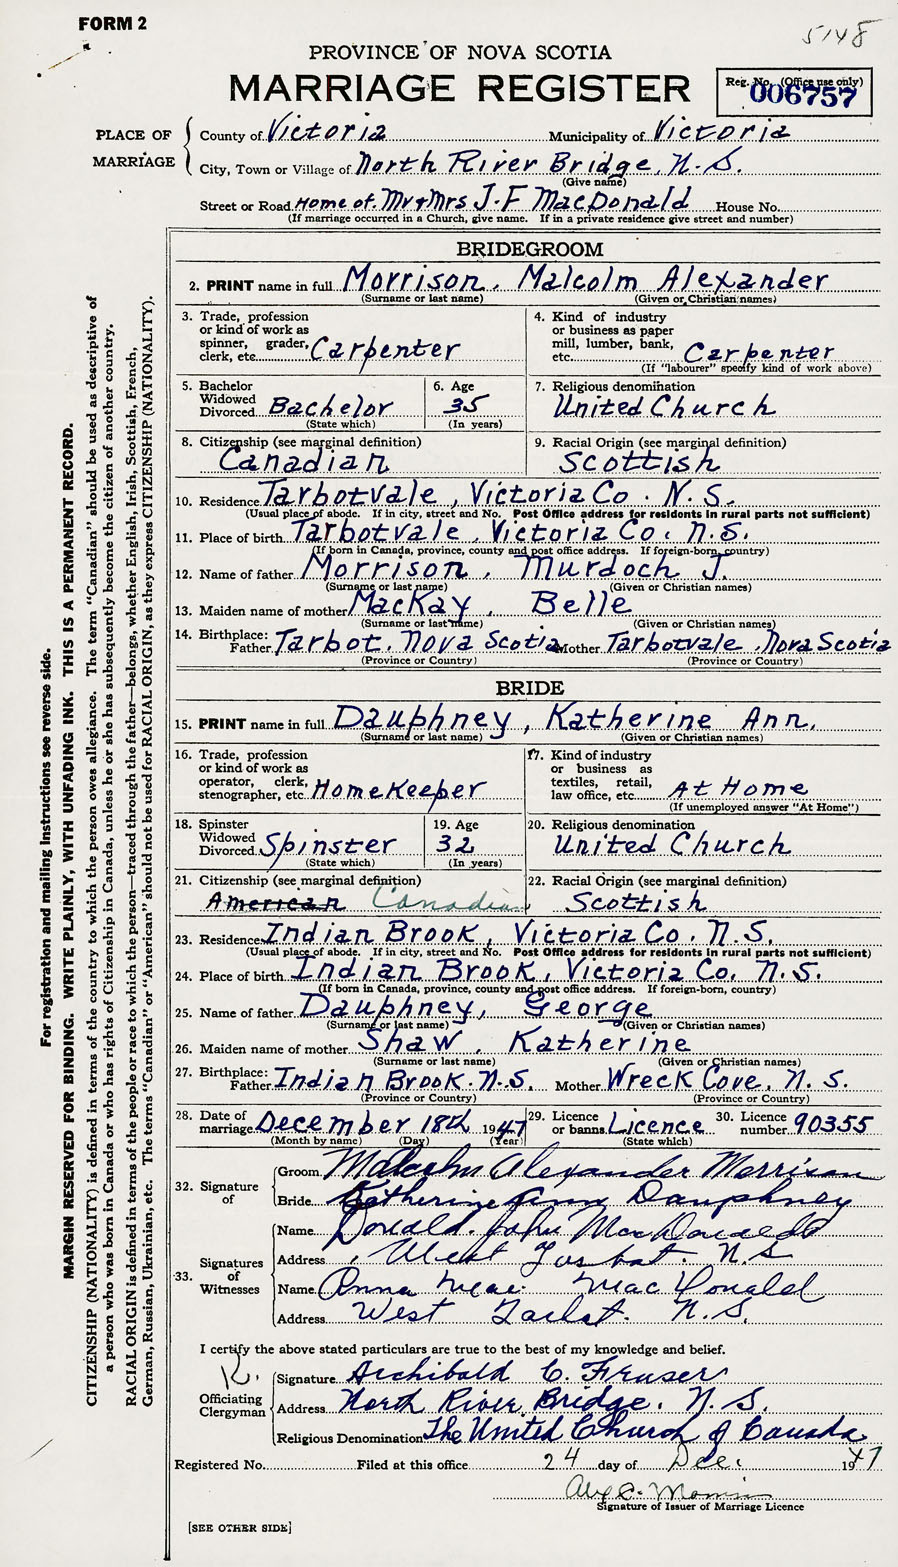 FORM 2
5148
PROVINCE OF NOVA SCOTIA
MARRIAGE REGISTER
Reg. No. (Office use only)
006757
PLACE OF MARRIAGE
County of Victoria Municipality of Victoria
City, Town or Village of North River Bridge, N.S.
(Give name)
Street or Road Home of Mr & Mrs J. F MacDonald House No.
(If marriage occurred in a Church, give name. If in a private residence give street and number)
BRIDEGROOM
2. PRINT name in full Morrison, Malcolm Alexander
(Surname or last name) (Given or Christian names)
3. Trade, profession or kind of work as spinner, grader, clerk, etc. Carpenter
4. Kind of industry or business as paper mill, lumber, bank, etc. Carpenter
(If "labourer" specify kind of work above)
5. Bachelor Widowed Divorced Bachelor
(State which)
6. Age 35
(In years)
7. Religious denomination
United Church
8. Citizenship (see marginal definition)
Canadian
9. Racial Origin (see marginal definition)
Scottish
10. Residence Tarbotvale, Victoria Co. N.S.
(Usual place of abode. If in city, street and No. Post Office address for residents in rural parts not sufficient)
11. Place of birth Tarbotvale, Victoria Co. N.S.
(If born in Canada, province, county and post office address. If foreign-born, country)
12. Name of father Morrison, Murdoch J.
(Surname or last name) (Given or Christian names)
13. Maiden name of mother MacKay, Belle
(Surname or last name) (Given or Christian names)
14. Birthplace:
Father Tarbot. Nova Scotia Mother Tarbotvale, Nova Scotia
(Province or Country) (Province or Country)
BRIDE
15. PRINT name in full Dauphney, Katherine Ann.
(Surname or last name) (Given or Christian names)
16. Trade, profession or kind of work as operator, clerk, stenographer, etc. HomeKeeper
17. Kind of industry or business as textiles, retail, law office, etc. At Home
(If unemployed answer "At Home")
18. Spinster Widowed Divorced Spinster
(State which)
19. Age 32
(In years)
20. Religious denomination
United Church
21. Citizenship (see marginal definition)
American Canadian
22. Racial Origin (see marginal definition)
Scottish
23. Residence Indian Brook, Victoria Co. N.S.
(Usual place of abode. If in city, street and No. Post Office address for residents in rural parts not sufficient)
24. Place of birth Indian Brook, Victoria Co. N.S.
(If born in Canada, province, county and post office address. If foreign-born, country)
25. Name of father Dauphney, George
(Surname or last name) (Given or Christian names)
26. Maiden name of mother Shaw, Katherine
(Surname or last name) (Given or Christian names)
27. Birthplace:
Father Indian Brook. N.S. Mother Wreck Cove, N.S.
(Province or Country) (Province or Country)
28. Date of marriage December 18th 1947
(Month by name) (Day) (Year)
29. Licence or banns Licence
(State which)
30. Licence number 90355
32. Signature of
Groom Malcolm Alexander Morrison
Bride Katherine Ann Dauphney
33. Signatures of Witnesses
Name Donald John MacDonald
Address West Tarbot. N.S
Name Anna Mae MacDonald
Address West Tarbot. N.S.
I certify the above stated particulars are true to the best of my knowledge and belief.
Officiating Clergyman
Signature Archibald C. Fraser
Address North River Bridge, N.S.
Religious Denomination The United Church of Canada
Registered No. Filed at this office 24 day of Dec. 1947
Alex C. Morrison
Signature of Issuer of Marriage Licence
[SEE OTHER SIDE]
For registration and mailing instructions see reverse side.
MARGIN RESERVED FOR BINDING. WRITE PLAINLY, WITH UNFADING INK. THIS IS A PERMANENT RECORD.
CITIZENSHIP (NATIONALITY) is defined in terms of the country to which the person owes allegiance. The term "Canadian" should be used as descriptive of
a person who was born in Canada or who has rights of Citizenship in Canada, unless he or she has subsequently become the citizen of another country.
RACIAL ORIGIN is defined in terms of the people or race to which the person—traced through the father—belongs, whether English, Irish, Scottish, French,
German, Russian, Ukrainian, etc. The terms "Canadian" or "American" should not be used for RACIAL ORIGIN, as they express CITIZENSHIP (NATIONALITY).